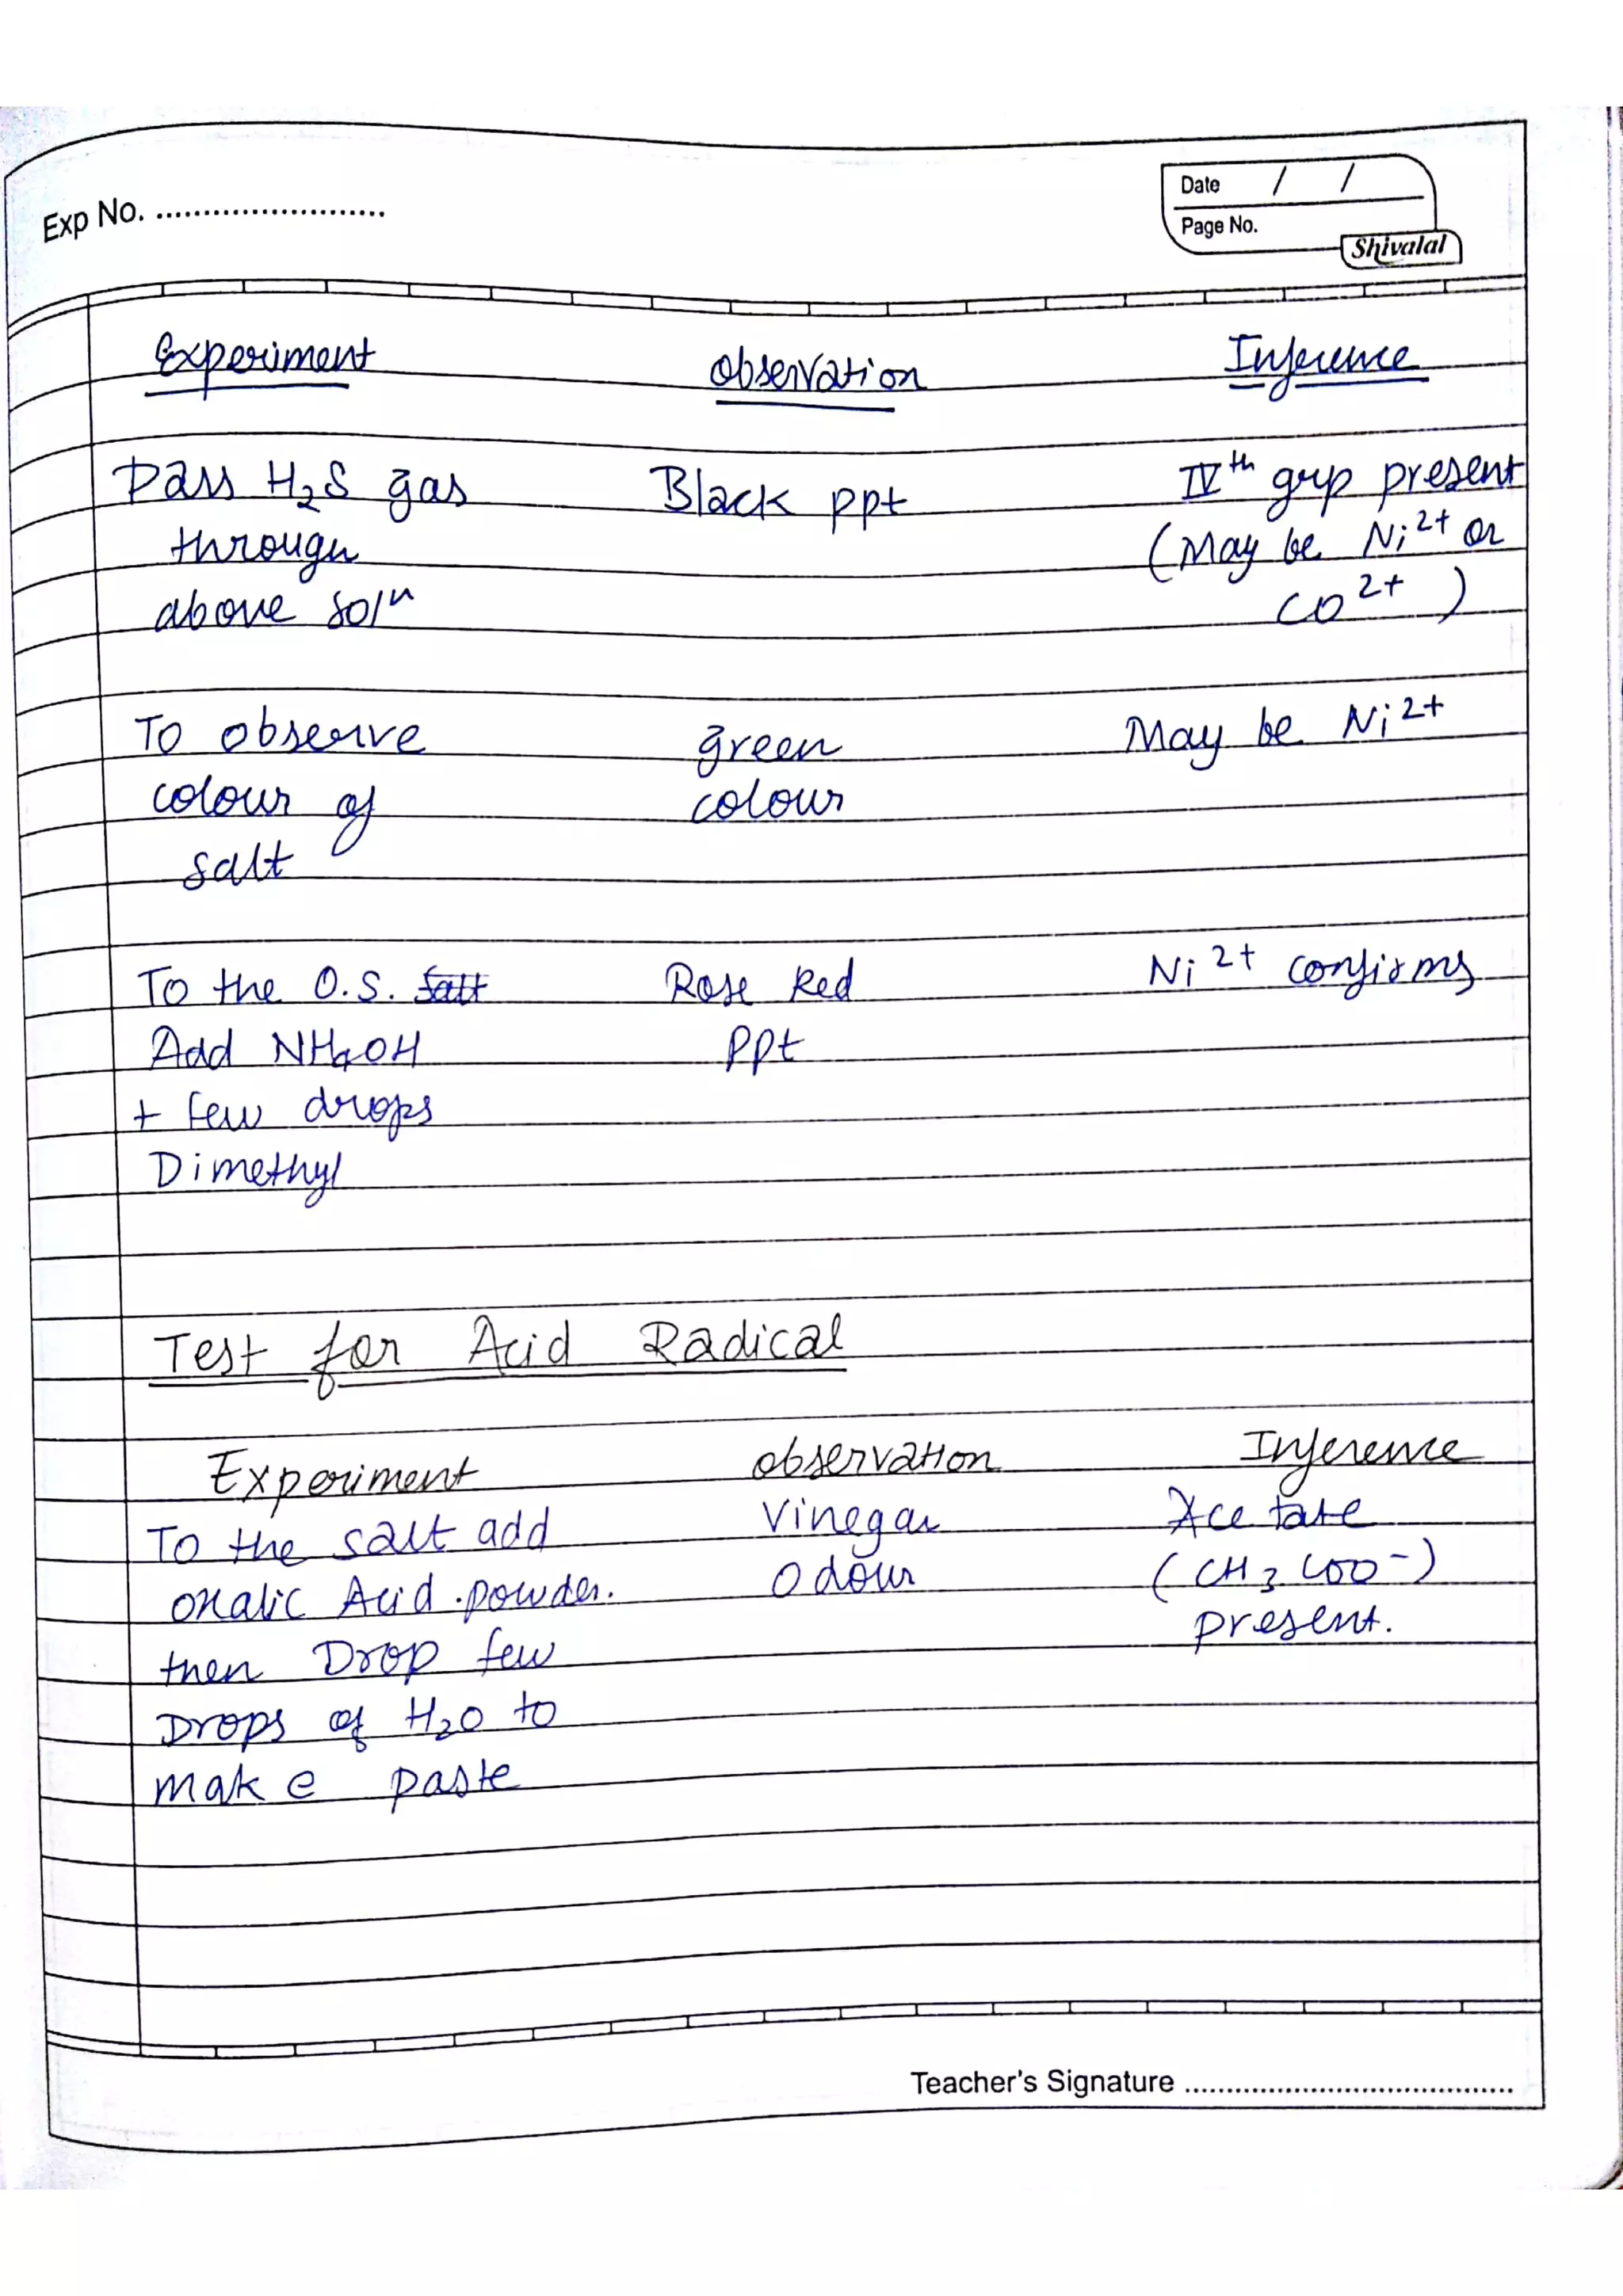 Exp No. ........................
Date / /
Page No.
Shivalal
Experiment observation Inference
Pass H₂S gas Black ppt IVth grp present
through (May be Ni²⁺ or
above solⁿ CO²⁺)
To observe green May be Ni²⁺
colour of colour
salt
To the O.S. Salt Rose Red Ni²⁺ confirms
Add NH₄OH ppt
+ few drops
Dimethyl
Test for Acid Radical
Experiment observation Inference
To the salt add Vinegar Acetate
oxalic Acid .powder. Odour (CH₃COO⁻)
then Drop few present.
Drops of H₂O to
make paste
Teacher's Signature ........................................